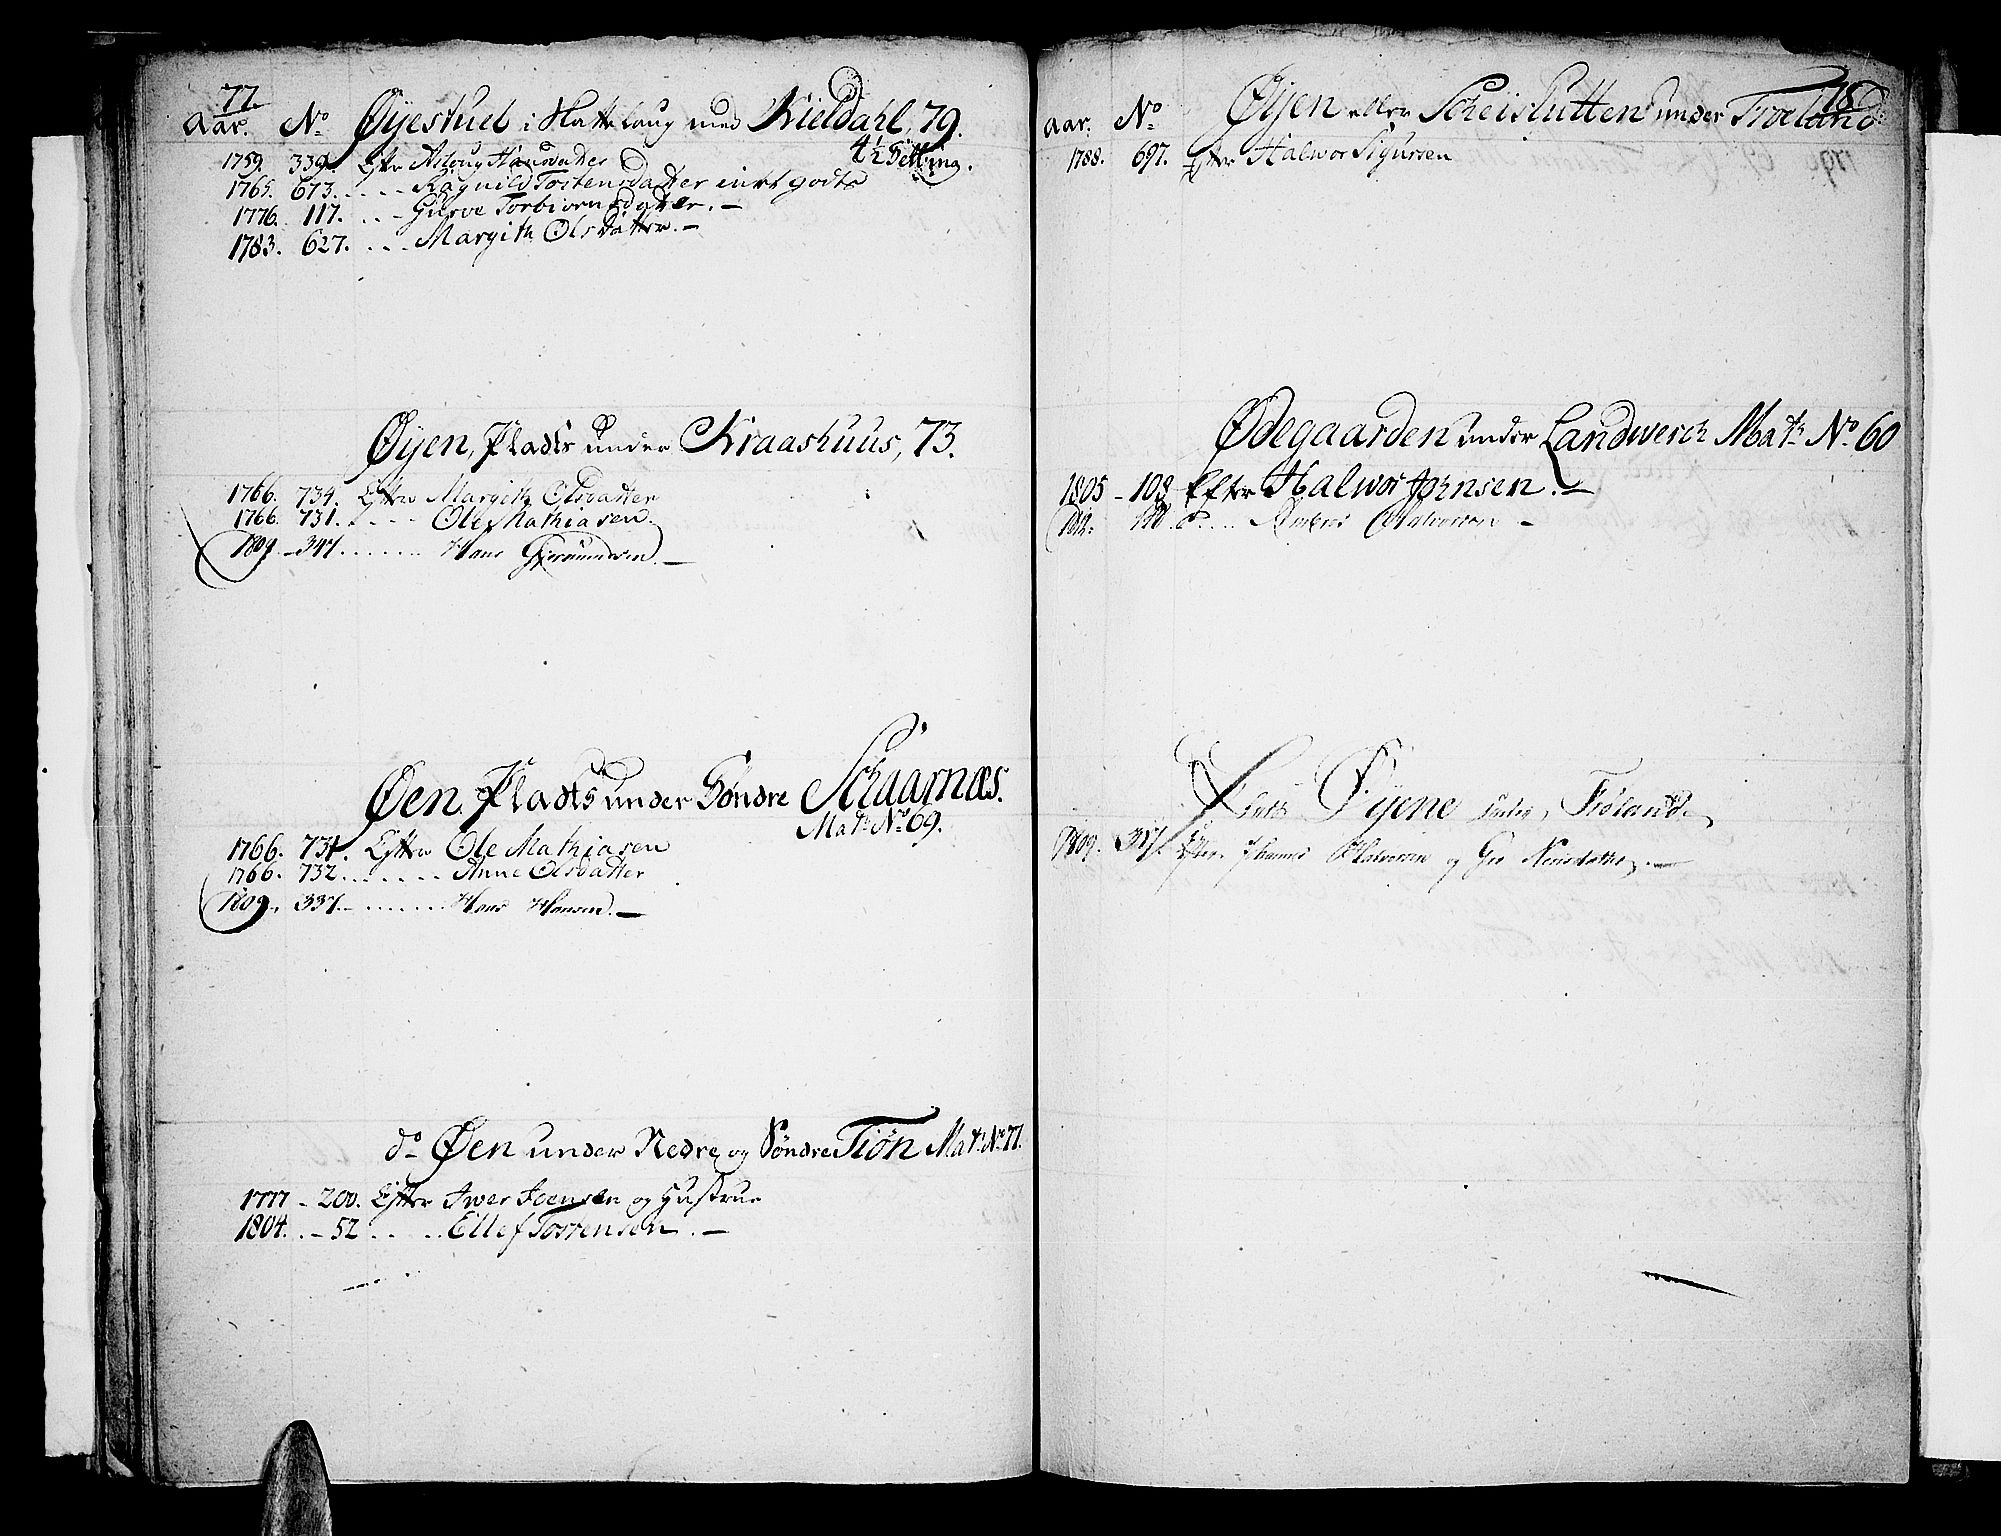 77.
Aar. No Øyestuel i Matte laug med Kieldahl, 79.
4½ Setting.
1759. 339. Efter Asloug
1765. 673. . . . . Ragnild Tostensdatter intet gods
1776. 117. . . - Gurve Torbiornsdatter. -
1783. 627. . . . Margith Olsdatter. -
Øyen, Plads under Kraashuus, 73.
1766. 734. Efter Margith Olsdatter
1766. 731. . . . . Ole Mathiasen.
1809. - 347. . . . . . . Hans Giermundsen. -
Øen Plads under Søndre Schaarnæs.
Matr No 69.
1766. 731. Efter Ole Mathiasen
1766. 732. . . . . . . Anne Olsdatter
1809. 337. - . . . . . . . Hans Hansen. -
do Øen under Nedre og Søndre Tiøn Matr No 71.
1777 - 200. Efter Iwer Joensen og Hustrue
1804. . - 52 . . . . . Ellef Torrensen. -
78
Aar. No Øyen eller Scheisslutten under Troeland
1788. 697. Efter Halwor Sigursen
Ødegaarden under Landwerch Matr No 60
1805 - 108 Efter Halwor Jørnsen. -
1812. 180. . . . . Anders Halvorsen -
Øyene under Frøland
1809. 317. Efter Johannes Halvorsen og Gro Nersdatter. -